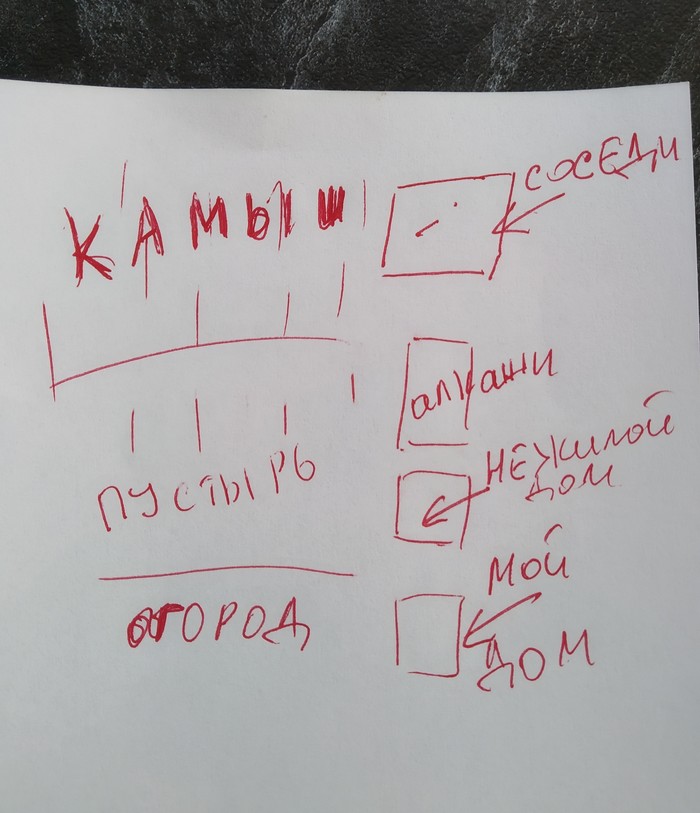 СОСЕДИ
КАМЫШ
алкаши
НЕЖИЛОЙ
ДОМ
ПУСТЫРЬ
МОЙ
ДОМ
ОГОРОД